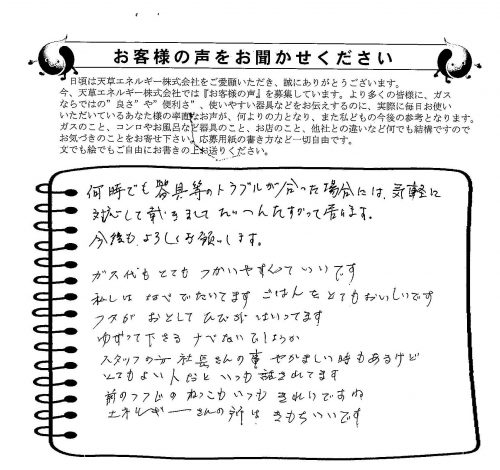 お客様の声をお聞かせください
日頃は天草エネルギー株式会社をご愛顧いただき、誠にありがとうございます。
今、天草エネルギー株式会社では『お客様の声』を募集しています。より多くの皆様に、ガス
ならではの"良さ"や"便利さ"、使いやすい器具などをお伝えするのに、実際に毎日お使い
いただいているあなた様の率直なお声が、何よりの力となり、また私どもの今後の参考となります。
ガスのこと、コンロやお風呂など器具のこと、お店のこと、他社との違いなど何でも結構ですので
お気づきのことをお寄せ下さい。応募用紙の書き方など一切自由です。
文でも絵でもご自由にお書きの上お送りください。
何時でも器具等のトラブルが合った場合には、気軽に
対応して戴きまして 居ります。
今後も、よろしくお願いします。
ガス代も とても つかいやすくていいです
私しは なべでたいてます ごはんをとてもおいしいです
フタが おとして ひびがはいってます
ゆずって下さる ナベないでしょうか
スタッフの方 社長さんの事 やかましい時もあるけど
とてもよい人だと いつも話されてます
前の の ねっこもいつも きれいですね
エネルギーさんの所は きもちいいです